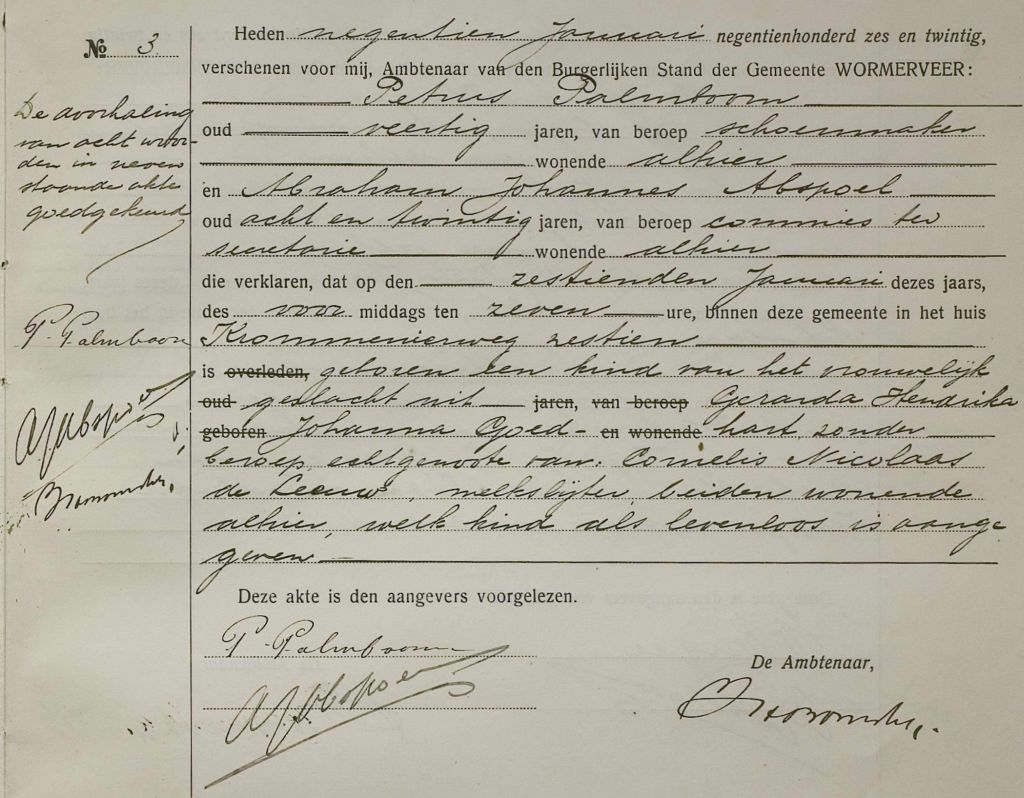 No 3.
De doorhaling
van acht woor-
den in neven
staande akte
goedgekeurd
P. Palmboom
Heden negentien Januari negentienhonderd zes en twintig,
verschenen voor mij, Ambtenaar van den Burgerlijken Stand der Gemeente WORMERVEER:
Petrus Palmboom
oud veertig jaren, van beroep schoenmaker
wonende alhier
en Abraham Johannes Abspoel
oud acht en twintig jaren, van beroep commies ter
secretarie wonende alhier
die verklaren, dat op den zestienden Januari dezes jaars,
des voor middags ten zeven ure, binnen deze gemeente in het huis
Krommenierweg zestien
is overleden, geboren een kind van het vrouwelijk
oud geslacht uit jaren, van beroep Gerarda Hendrika
geboren Johanna Goed- en wonende hart, zonder
beroep, echtgenoote van: Cornelis Nicolaas
de Leeuw, melkslijter, beiden wonende
alhier, welk kind als levenloos is aange
geven
Deze akte is den aangevers voorgelezen.
P. Palmboom
A J Abspoel
De Ambtenaar,